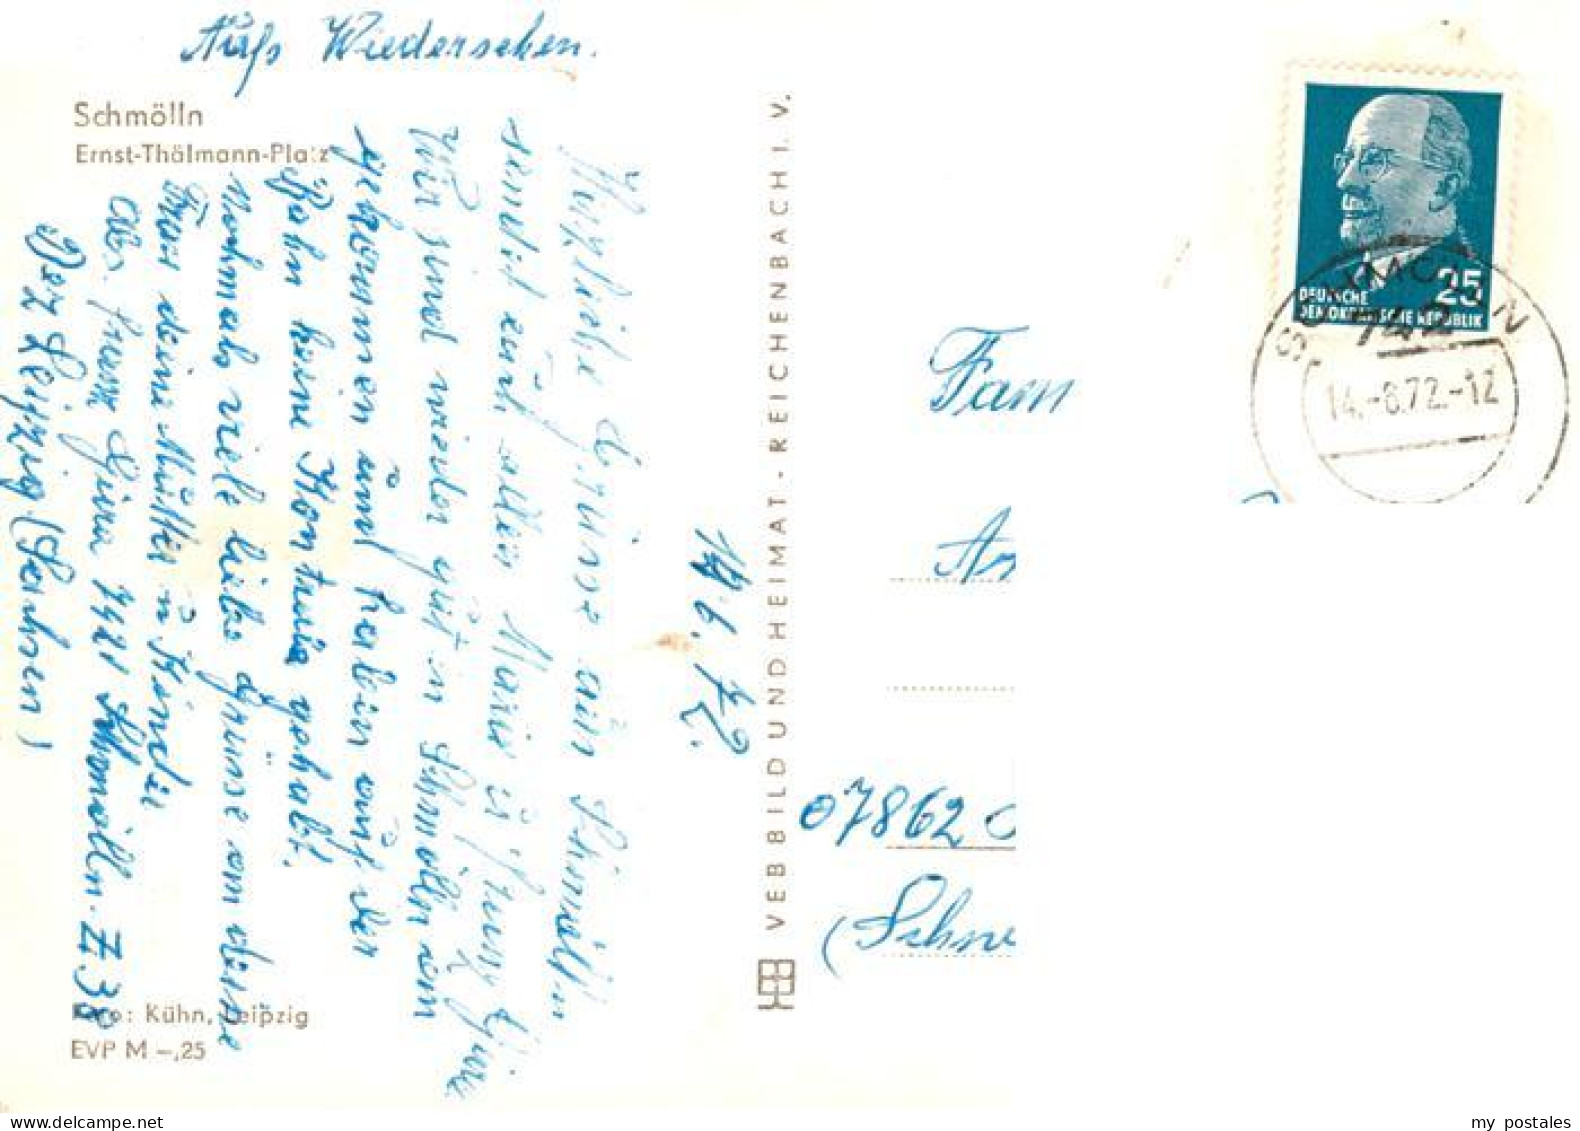 Aufs Wiedersehen.
Schmölln
Ernst-Thälmann-Platz
14.6.72.
Herzliche Grüsse aus Schmölln
sendet euch allen Marie u.
Wir sind wieder gut in Schmölln am
gekommen und herbin auf der
Bahn keine Kontrule gehabt.
Nochmals viele liebe Grüsse am deine
Frau deine Mutter u Kinder
7421 Schmölln. Z 38
Bez Leipzig (Sachsen)
Foto: Kühn, Leipzig
EVP M –,25
VEB BILD UND HEIMAT · REICHENBACH I. V.
25
DEUTSCHE
DEMOKRATISCHE REPUBLIK
SCHMÖLLN
742
14.-8.72.-12
Fam
07862
(Schne
my postales